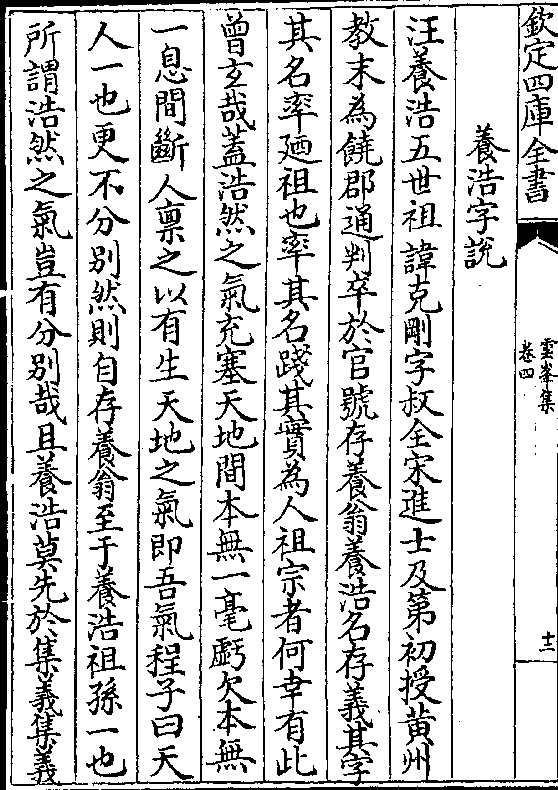 欽定四庫全書
雲峯集
卷四
十三
養浩字說
汪養浩五世祖諱克剛字叔全宋進士及第初授黄州
教末為饒郡通判卒於官號存養翁養浩名存義其字
其名率廼祖也率其名踐其實為人祖宗者何幸有此
曾玄哉蓋浩然之氣充塞天地間本無一毫虧欠本無
一息間斷人禀之以有生天地之氣即吾氣程子曰天
人一也更不分別然則自存養翁至于養浩祖孫一也
所謂浩然之氣豈有分别哉且養浩莫先於集義集義